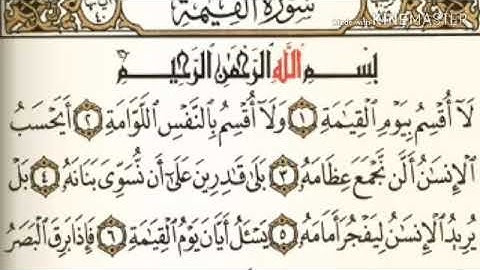 سورة القيمة
Made with KINEMASTER
بسم الله الرحمن الرحيم
لَآ أُقْسِمُ بِيَوْمِ الْقِيَٰمَةِ ١ وَلَآ أُقْسِمُ بِالنَّفْسِ اللَّوَّامَةِ ٢ أَيَحْسَبُ
الْإِنسَٰنُ أَلَّن نَّجْمَعَ عِظَامَهُۥ ٣ بَلَىٰ قَٰدِرِينَ عَلَىٰٓ أَن نُّسَوِّيَ بَنَانَهُۥ ٤ بَلْ
يُرِيدُ الْإِنسَٰنُ لِيَفْجُرَ أَمَامَهُۥ ٥ يَسْـَٔلُ أَيَّانَ يَوْمُ الْقِيَٰمَةِ ٦ فَإِذَا بَرِقَ الْبَصَرُ